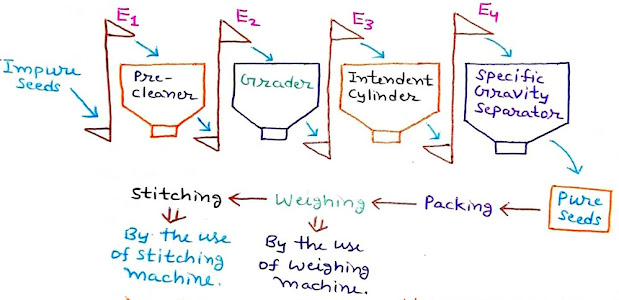 E1
E2
E3
E4
Impure
Seeds
Pre-
cleaner
Grader
Intendent
Cylinder
Specific
Gravity
Separator
Stitching
Weighing
Packing
Pure
Seeds
By the use
of Stitching
machine.
By the use
of weighing
machine.